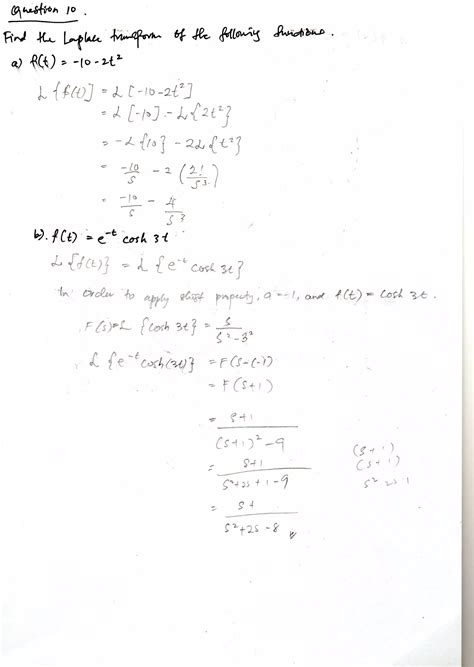 Question 10.
Find the Laplace transform of the following functions.
a) f(t) = -10 - 2t²
L{f(t)] = L[-10-2t²]
= L[-10] - L{2t²}
= -L{10} - 2L{t²}
= -10/s - 2(2!/s³)
= -10/s - 4/s³
b). f(t) = e^-t cosh 3t
L{f(t)} = L{e^-t cosh 3t}
In order to apply shift property, a = -1, and f(t) = cosh 3t.
F(s)=L{cosh 3t} = s/s²-3²
L{e^-t cosh(3t)} = F(s-(-1))
= F(s+1)
= s+1/(s+1)²-9
= s+1/s²+2s+1-9
= s+/s²+2s-8
(s+1)
(s+1)
s² 2s 1